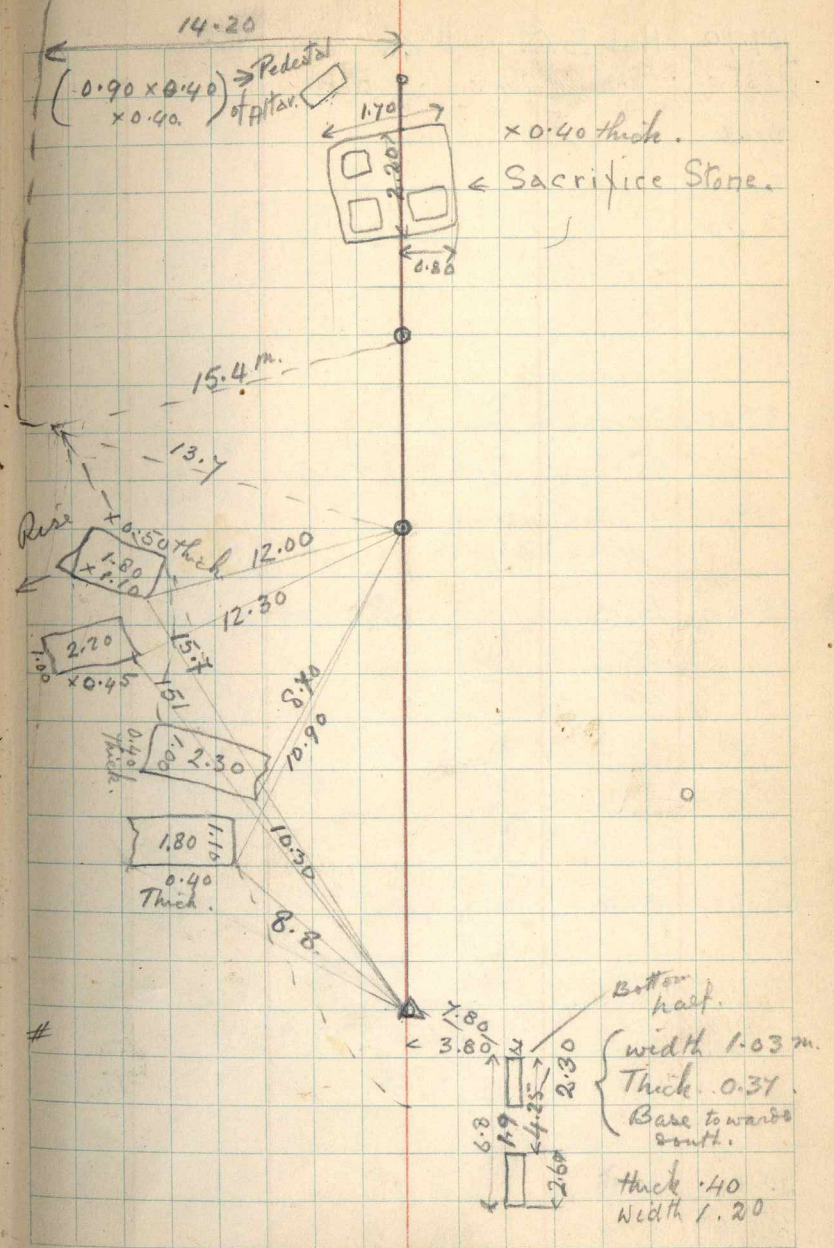 14.20
(0.90 x 0.40
x 0.40.)
Pedestal
of Altar.
1.70
2.20
x 0.40 thick.
Sacrifice Stone.
0.80
15.4 m.
13.7
Rise
x 0.50 thick
1.80
x 1.10
12.00
12.30
2.20
1.00
x 0.45
15.7
151
8.70
10.90
0.40
Thick.
1.00
2.30
1.80
1.10
0.40
Thick.
10.30
8.8
#
7.80
3.80
Bottom
half.
width 1.03 m.
Thick 0.37
Base towards
south.
2.30
4.25
6.8
1.9
2.60
thick .40
Width 1.20